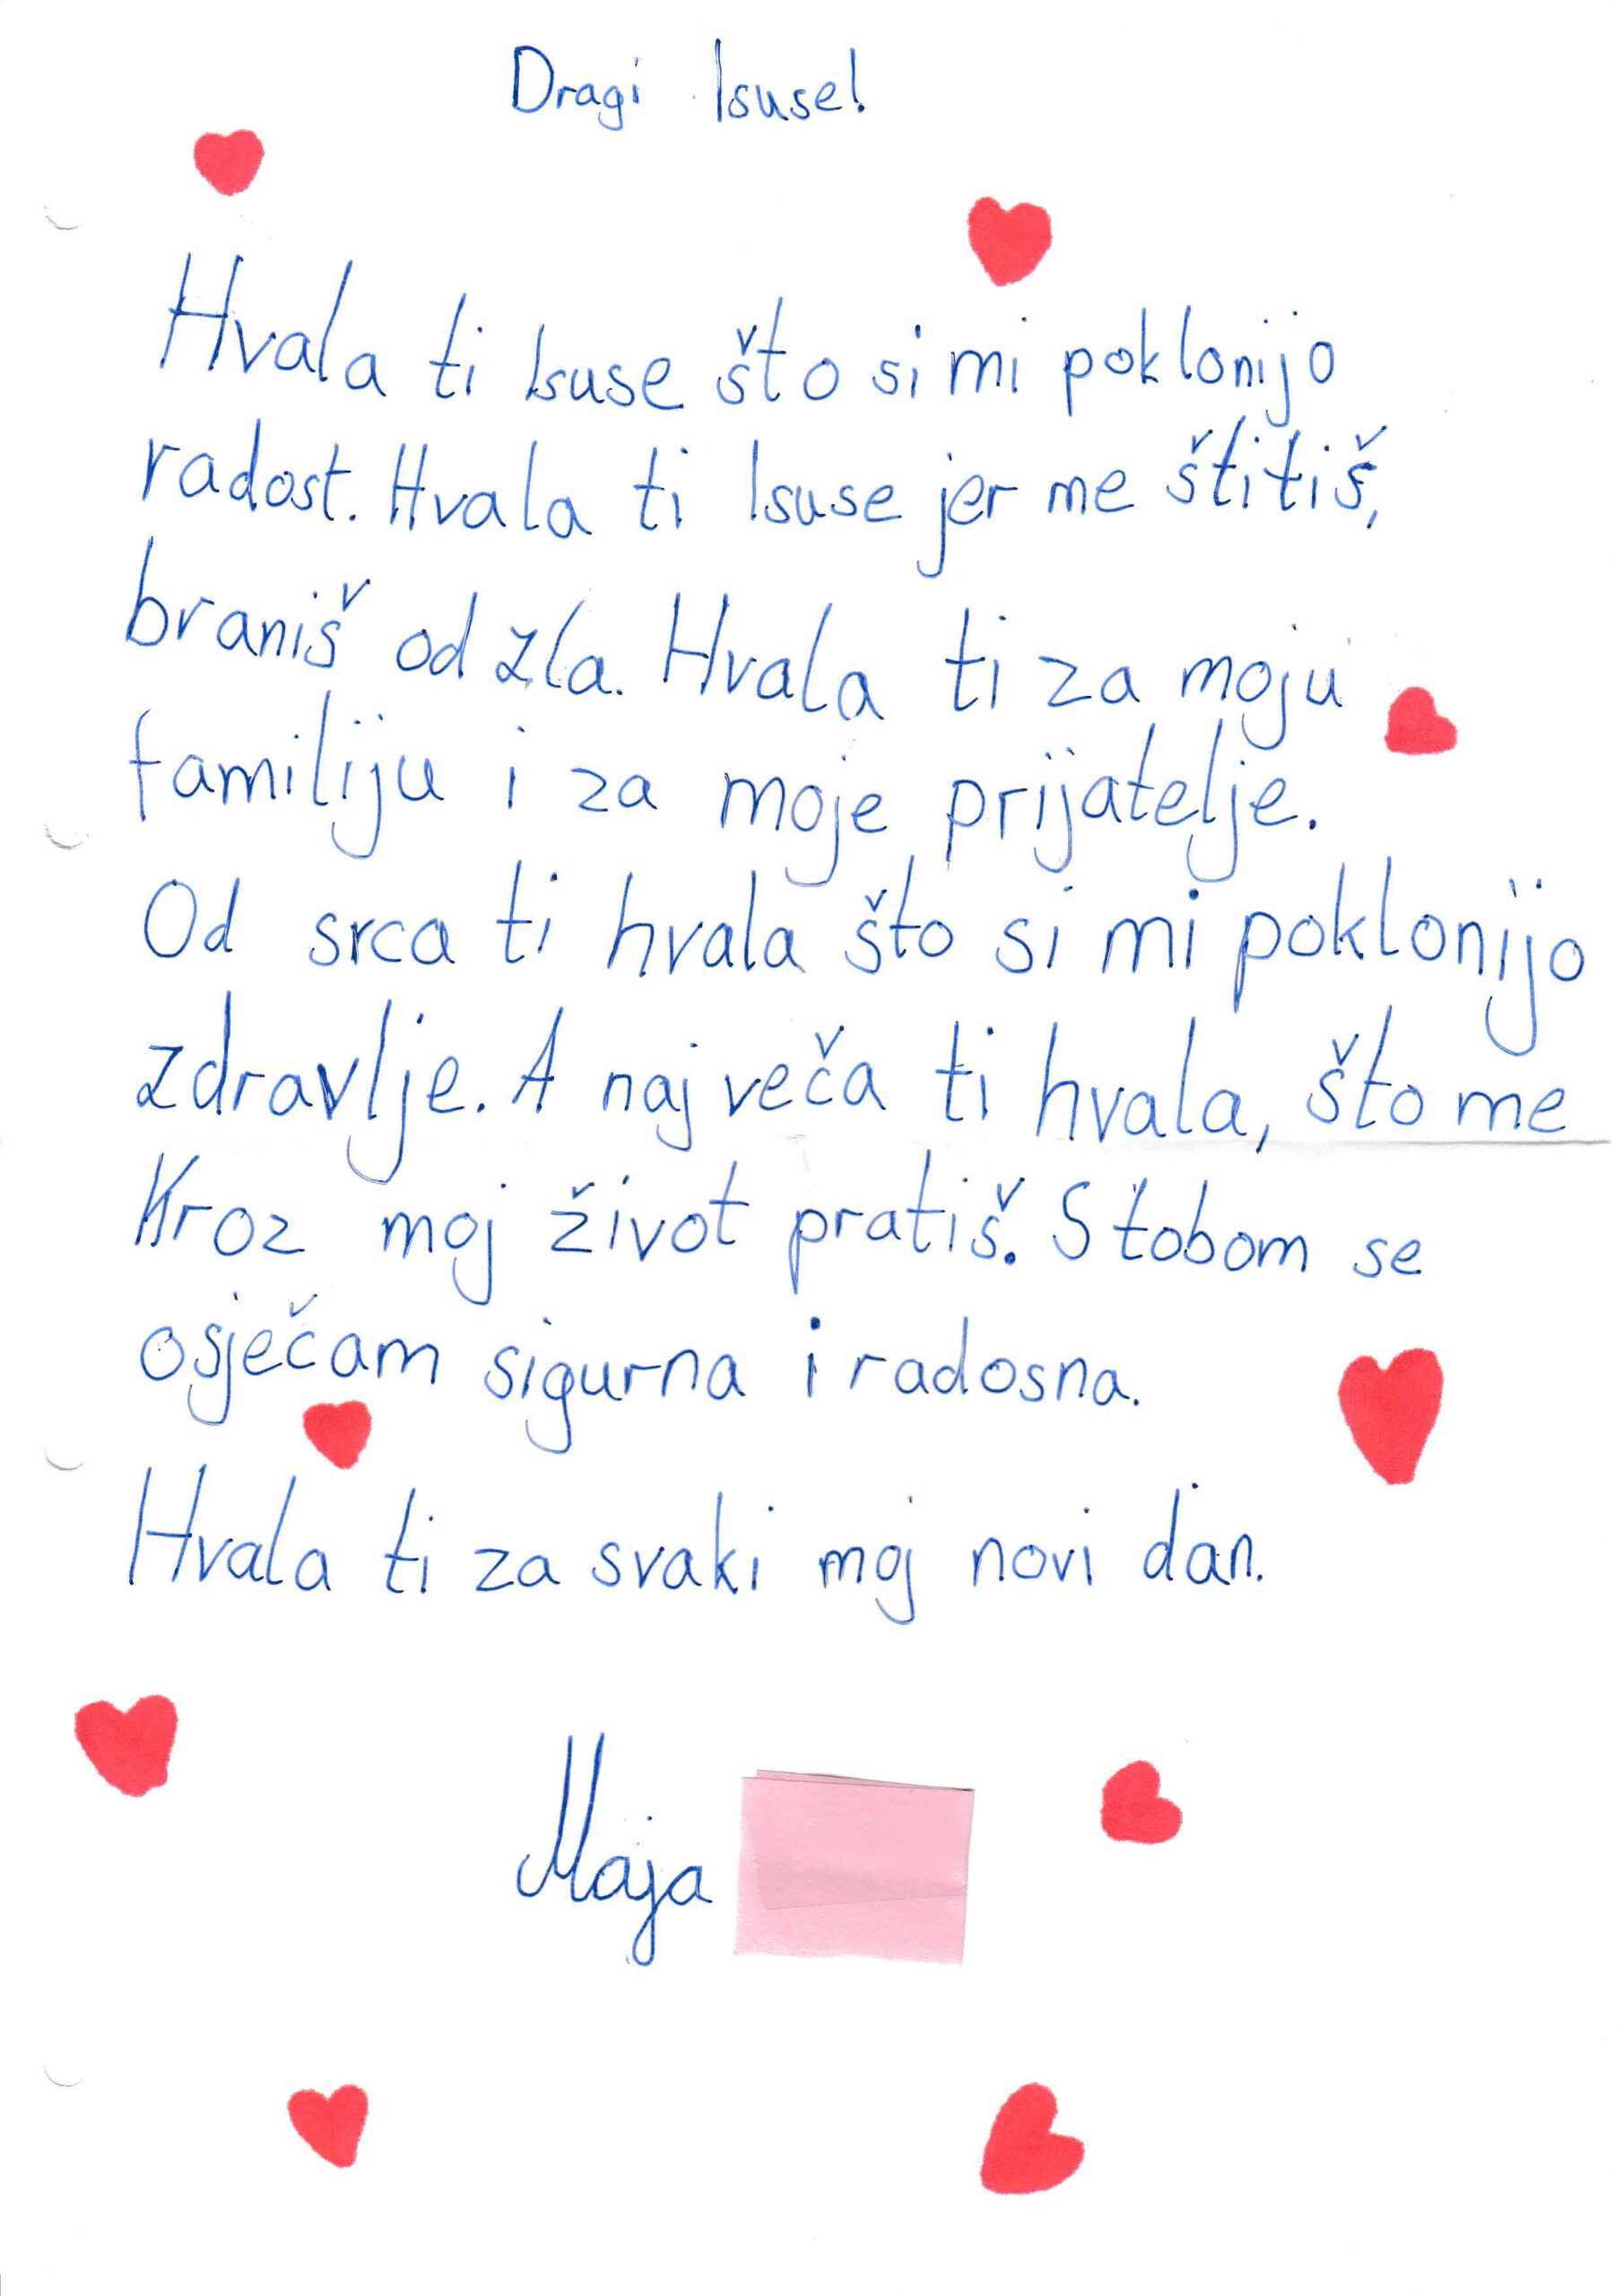 Dragi Isuse!
Hvala ti Isuse što si mi poklonijo
radost. Hvala ti Isuse jer me štitiš,
braniš od zla. Hvala ti za moju
familiju i za moje prijatelje.
Od srca ti hvala što si mi poklonijo
zdravlje. A naj veča ti hvala, što me
Kroz moj život pratiš. S tobom se
osječam sigurna i radosna.
Hvala ti za svaki moj novi dan.
Maja